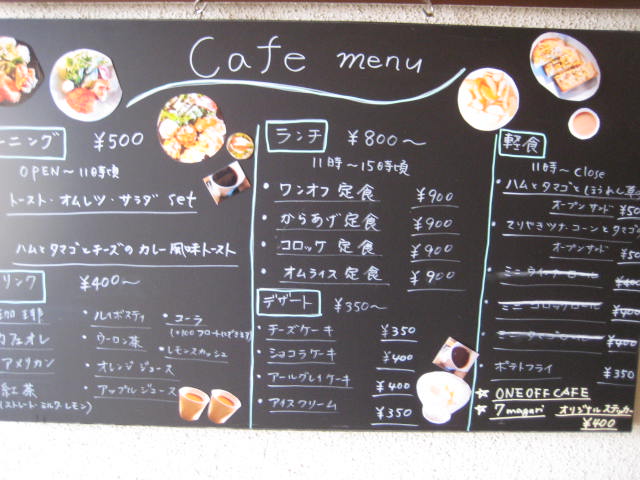 Cafe menu
ーニング ¥500
OPEN〜11時頃
トースト・オムレツ・サラダ set
ハムとタマゴとチーズのカレー風味トースト
リンク ¥400〜
珈琲
カフェオレ
アメリカン
紅茶
(ストレート・ミルク・レモン)
・ルイボスティ
・ウーロン茶
・オレンジジュース
・アップルジュース
・コーラ
(+100 フロートにできます)
・レモンスカッシュ
ランチ ¥800〜
11時〜15時頃
・ワンオフ定食 ¥900
・からあげ定食 ¥900
・コロッケ定食 ¥900
・オムライス定食 ¥900
デザート ¥350〜
・チーズケーキ ¥350
・ショコラケーキ ¥400
・アールグレイケーキ ¥400
・アイスクリーム ¥350
軽食
11時〜close
・ハムとタマゴとほうれん草
オープンサンド ¥50
・てりやきツナ・コーンとタマゴ
オープンサンド ¥50
・ミニ ロール ¥400
・ミニコロッケロール ¥400
・ミニタマゴロール ¥400
・ポテトフライ ¥350
★ ONEOFFCAFE
★ 7magari オリジナルステッカー
¥400